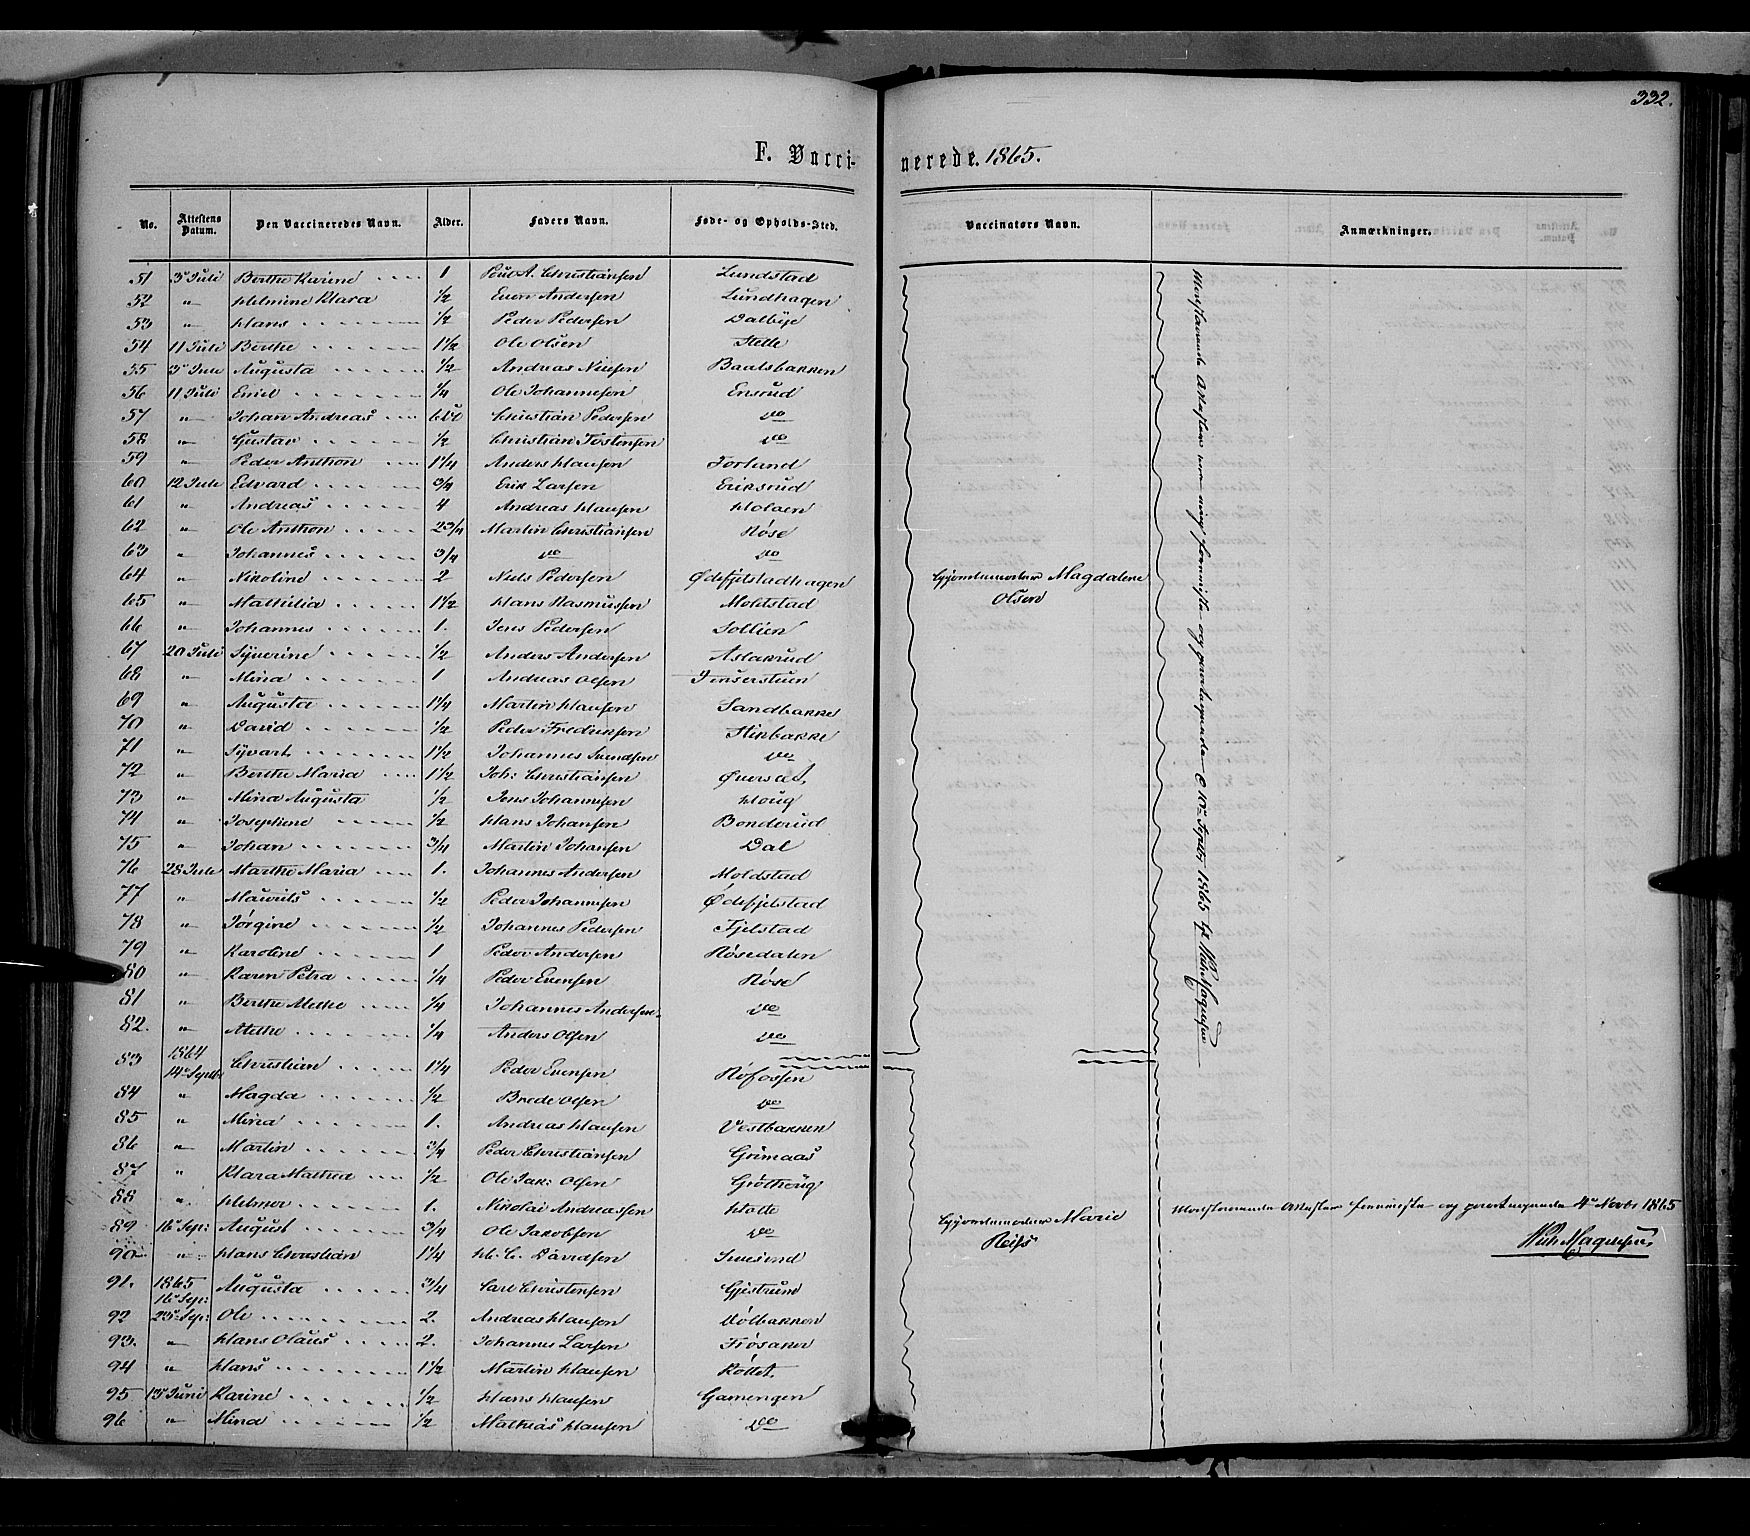 332.
F. Vacci- nerede. 1865.
No. Attestens Datum. Den Vaccineredes Navn. Alder. Faders Navn. Føde- og Opholds-Sted. Vaccinators Navn. Anmærkninger.
51 3' Juli Berthe Karine 1 Poul A. Christiansen Lundstad
52 " Helmine Klara 1/2 Even Andersen Lundhagen
53 " Hans 1/2 Peder Pedersen Dalbye
54 11 Juli Berthe 1 1/2 Ole Olsen Stette
55 3' Juli Augusta 1/2 Andreas Nilsen Baalsbakken
56 11 Juli Emil 1/4 Ole Johannesen Ensrud
57 " Johan Andreas Christian Pedersen do
58 " Gustav 1/2 Christian Tostensen do
59 " Peder Anthon 1 1/4 Anders Hansen Forlund
60 12 Juli Edvard 3/4 Erik Larsen Eriksrud
61 " Andreas 4 Andreas Hansen Holaen
62 " Ole Anthon 2 3/4 Martin Christiansen Røse
63 " Johannes 3/4 do do
64 " Nikoline 2 Niels Pedersen Ødefjelstadhagen Gjordemoder Magdalene
65 " Mathilia 1 1/2 Hans Rasmussen Moldstad Olsen
66 " Johannes 1. Jens Pedersen Sollien
67 20 Juli Syverine 1/2 Anders Andersen Aslakrud
68 " Mina 1 Andreas Olsen
69 " Augusta 1 1/4 Martin Hansen Sandbakke
70 " David 1/2 Peder Fredriksen Stikbakke
71 " Syvart 1 1/2 Johannes Svendsen do
72 " Berthe Maria 1 1/2 Joh: Christiansen Øversæt.
73 " Mina Augusta 1/2 Jens Johannesen Houg
74 " Josephine 1/2 Hans Johansen Bonderud
75 " Johan 3/4 Martin Johansen Dal
76 28 Juli Marthe Maria 1. Johannes Andersen Moldstad
77 " Maurits 1/2 Peder Johannesen Ødefjelstad
78 " Jørgine 1/2 Johannes Pedersen Fjelstad
79 " Karoline 1 Peder Andersen Røsedalen
80 " Karen Petra 1/4 Peder Evensen Røse
81 " Berthe Methe 1/4 Johannes Andersen do
82. " Methe 1/4 Anders Olsen do
83 1864 14' Septbr Christian 1 1/4 Peder Evensen Røfossen
84 " Magda 1/2 Brede Olsen do
85 " Mina 1. Andreas Hansen Vestbakken
86 " Martin 3/4 Peder Christiansen Grimaas
87 " Klara Mathea 1/2 Ole Jak: Olsen Grøthoug
88 " Helmer 1. Nikolai Andreassen Holte
89 16' Sep: August 3/4 Ole Jakobsen do Gjordemoder Marie Reiss
90 " Hans Christian 1 1/4 H. C. Davidsen
91. 1865 16' Sep: Augusta 3/4 Carl Christensen Gjestrum
92 23' Sep: Ole 2. Andreas Hansen Vølbakken
93. " Hans Olaus 2. Johannes Larsen Frøsaker
94 " Hans 1 1/2 Martin Hansen Røttet.
95 13' Juni Karine 1/2 Hans Hansen Gamengen
96 " Mina 1/2 Mathias Hansen do
Attester 10' Septbr 1865
4' Novbr 1865